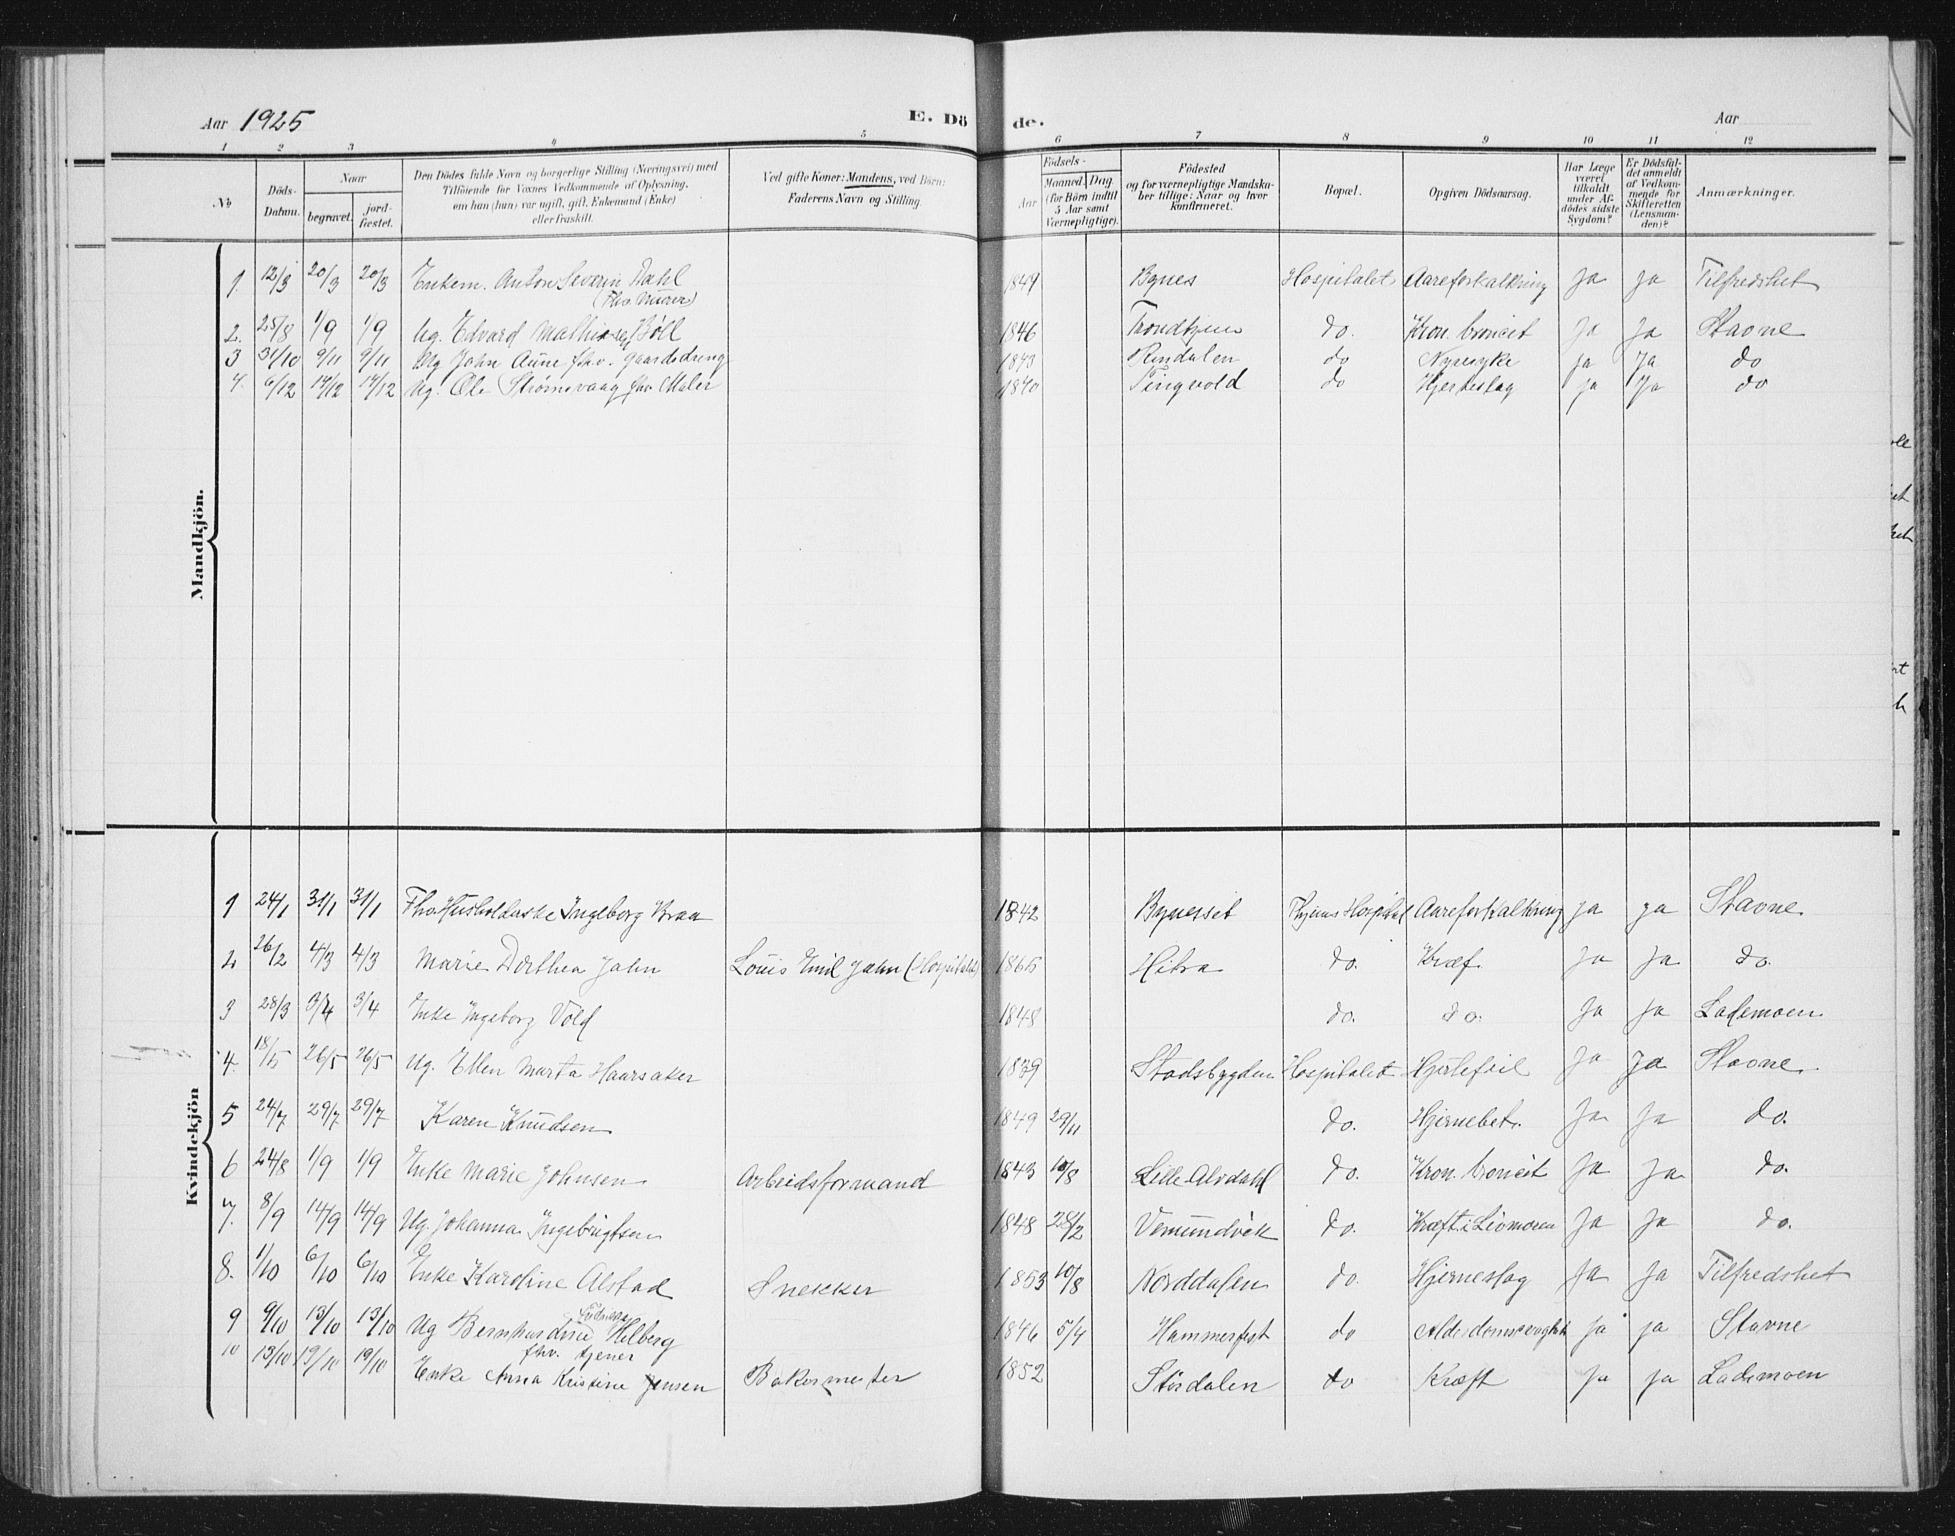 Aar 1925 E. Döde. Aar
1 2 3 4 5 6 7 8 9 10 11 12
No Döds-Datum. Naar begravet. jordfæstet. Den Dödes fulde Navn og borgerlige Stilling (Næringsvei) med Tilföiende for Voxnes Vedkommende af Oplysning, om han (hun) var ugift, gift, Enkemand (Enke) eller fraskilt. Ved gifte Koner: Mandens, ved Börn: Faderens Navn og Stilling. Födsels- Aar Maaned. Dag. (for Börn indtil 5 Aar samt Værnepligtige). Födested og for værnepligtige Mandskaber tillige: Naar og hvor konfirmeret. Bopæl. Opgiven Dödsaarsag. Har Læge været tilkaldt under Afdödes sidste Sygdom? Er Dödsfaldet anmeldt af Vedkommende for Skifteretten (Lensmanden)? Anmærkninger.
Mandkjön.
1 12/3 20/3 20/3 Enkem. Anton Severin Dahl 1849 Bynes Hospitalet Aareforkalkning Ja Ja Tilfredshet
(Fhv. Murer)
2. 25/8 1/9 1/9 Ug. Edvard Mathias Böll 1846 Trondhjem do. Kron. broncit Ja Ja Stavne
3 31/10 9/11 9/11 Ug John Aune fhv. gaardsdreng 1843 Rindalen do Nyresyke Ja Ja do
4. 6/12 14/12 14/12 Ug. Ole Strømsvaag fhv Maler 1840 Tingvold do Hjerteslag Ja Ja do
Kvindekjön
1 24/1 31/1 31/1 Fhv. Husholderske Ingeborg Braa 1842 Bynesset Thjems Hospital Aareforkalkning Ja Ja Stavne
2 26/2 4/3 4/3 Marie Dorthea Jahn Louis Emil Jahn (Hospitalet) 1865 Hitra do. Kræf. Ja Ja do.
3 28/3 3/4 3/4 Enke Ingeborg Vold 1848 do. do. Ja Ja Lademoen
4 18/5 26/5 26/5 Ug. Ellen Marta Haarsaker 1839 Stadsbygden Hospitalet Hjertefeil Ja Ja Stavne
5 24/7 29/7 29/7 Karen Knudsen 1849 29/11 do. Hjernebet. Ja Ja do.
6 24/8 1/9 1/9 Enke Marie Johnsen Arbeidsformand 1843 10/8 Lille Alvdahl do. Kron. broncit Ja Ja do.
7. 8/9 14/9 14/9 Ug. Johanna Ingebrigtsen 1848 28/2 Vemundvik do. Kræft i Livmoren Ja Ja do.
8. 1/10 6/10 6/10 Enke Karoline Alstad Snekker 1853 10/8 Norddalen do. Hjerneslag Ja Ja Tilfredshet
9 9/10 13/10 13/10 Ug Bernhardine Helberg 1846 5/4 Hammerfest do Alderdomssvaghet Ja Ja Stavne
fhv. tjener
10 13/10 19/10 19/10 Enke Anna Kristine Jensen Bakermester 1852 Stördalen do Kræft Ja Ja Lademoen